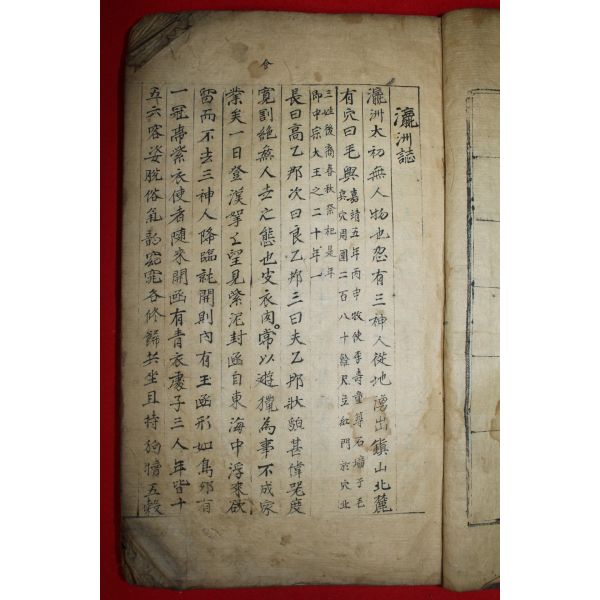 瀛洲誌
瀛洲大初無人物也忽有三神人從地湧出鎭山北麓
有穴曰毛興
嘉靖五年丙申牧使李壽童築石墻于毛
興穴周圍二百八十餘尺立紅門於穴北
三姓後裔春秋祭祀是年
即中宗大王之二十年一
長曰高乙那次曰良乙那三曰夫乙那狀貌甚偉器度
寬割絶無人世之態也皮衣肉常以遊獵為事不成家
業矣一日登漢拏之望見紫泥封凾自東海中浮來欲
留而不去三神人降臨就開則內有玉凾形如鳥卵有
一冠帶紫衣使者隨來開凾有青衣處子三人年皆十
五六容姿脫俗氣韵窈窕各修餙共坐且持駒犢五穀